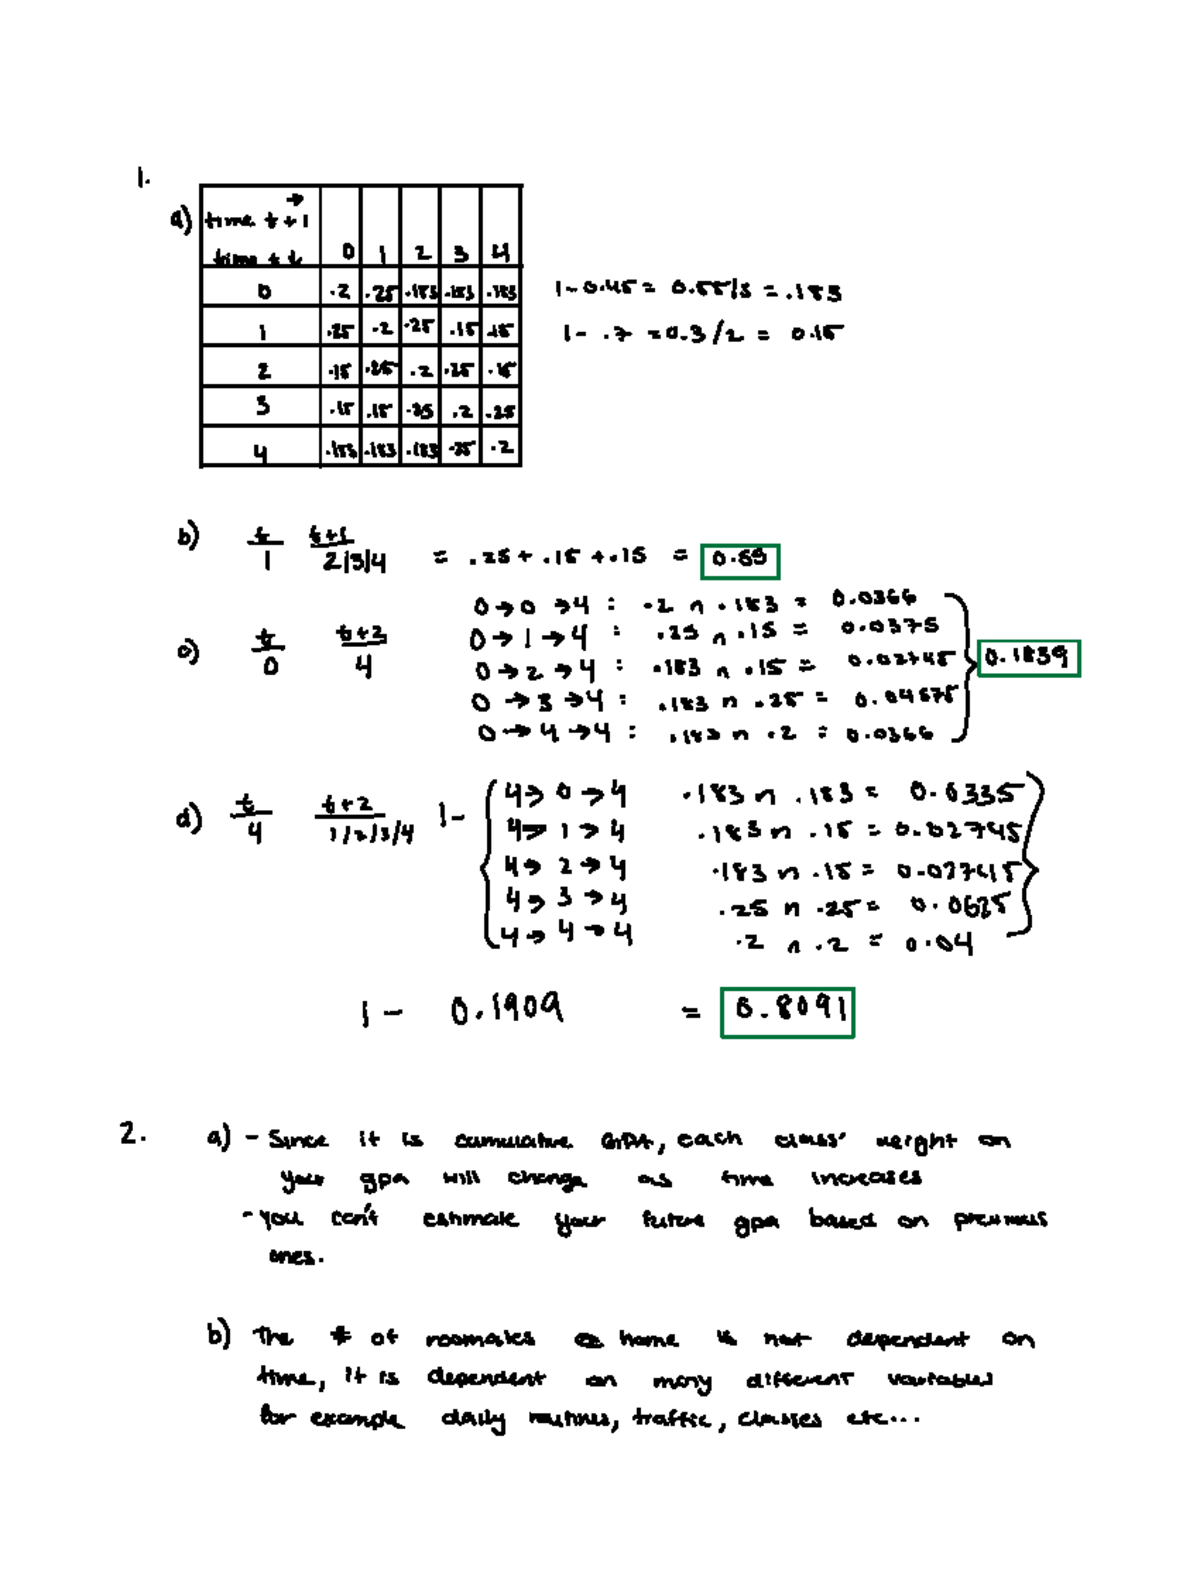 1.
a) time t+1 →
time t t 0 1 2 3 4
0 .2 .25 .183 .183 .183 1-0.45= 0.55/3 = .183
1 .25 .2 .25 .15 .15 1- .7 =0.3/2 = 0.15
2 .15 .25 .2 .25 .15
3 .15 .15 .25 .2 .25
4 .183 .183 .183 .25 .2
b) t/1 t+1/2|3|4 = .25+ .15 +.15 = 0.55
0→0→4: .2 ∩ .183 = 0.0366
0→1→4: .25 ∩ .15 = 0.0375
c) t/0 t+2/4 0→2→4: .183 ∩ .15 = 0.02745 0.1839
0→3→4: .183 ∩ .25 = 0.04575
0→4→4: .183 ∩ .2 = 0.0366
4→0→4 .183 ∩ .183 = 0.0335
d) t/4 t+2/1/2/3/4 1- 4→1→4 .183 ∩ .15 = 0.02745
4→2→4 .183 ∩ .15 = 0.02745
4→3→4 .25 ∩ .25 = 0.0625
4→4→4 .2 ∩ .2 = 0.04
1- 0.1909 = 0.8091
2. a) - Since it is cumulative GPA, each class' weight on
your gpa will change as time increases
- you can't estimate your future gpa based on previous
ones.
b) The # of roomates @ home is not dependent on
time, it is dependent on many different variables
for example daily routines, traffic, classes etc...